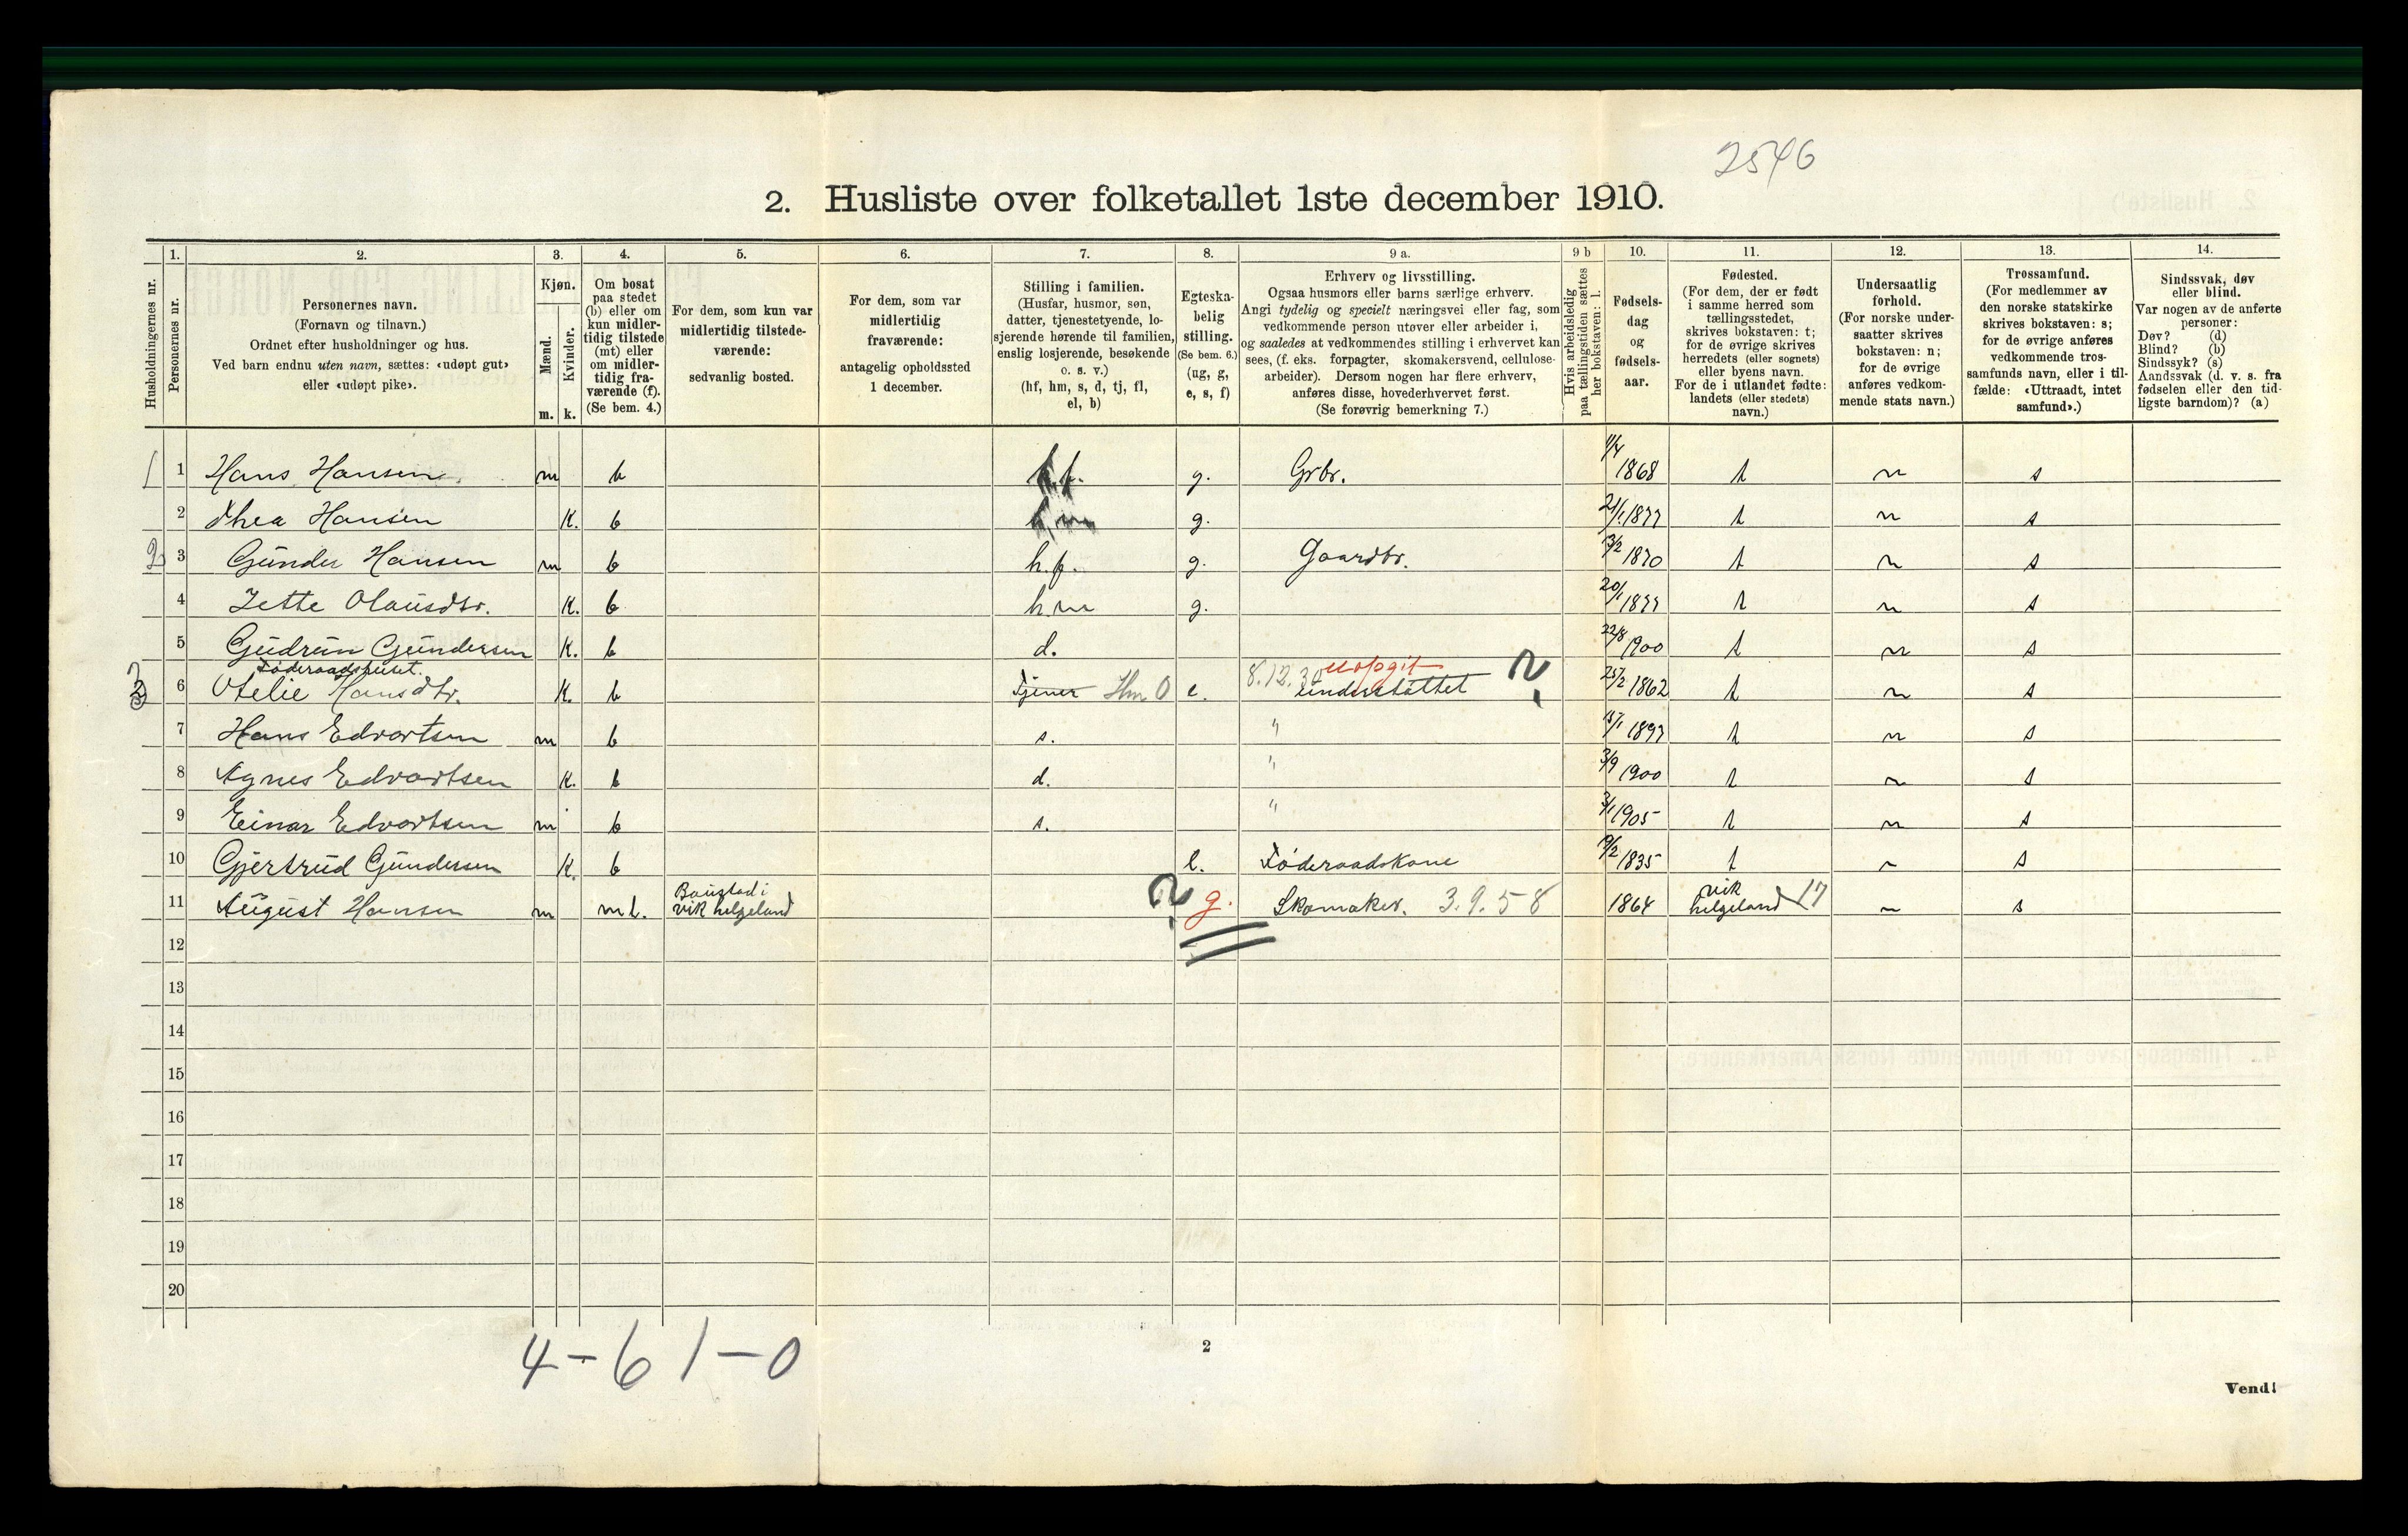 2546
2. Husliste over folketallet 1ste december 1910.
Husholdningernes nr.
1.
Personernes nr.
2.
Personernes navn.
(Fornavn og tilnavn.)
Ordnet efter husholdninger og hus.
Ved barn endnu uten navn, sættes: «udøpt gut»
eller «udøpt pike».
3.
Kjøn.
Mænd.
Kvinder.
m. k.
4.
Om bosat
paa stedet
(b) eller om
kun midler-
tidig tilstede
(mt) eller
om midler-
tidig fra-
værende (f).
(Se bem. 4.)
5.
For dem, som kun var
midlertidig tilstede-
værende:
sedvanlig bosted.
6.
For dem, som var
midlertidig
fraværende:
antagelig opholdssted
1 december.
7.
Stilling i familien.
(Husfar, husmor, søn,
datter, tjenestetyende, lo-
sjerende hørende til familien,
enslig losjerende, besøkende
o. s. v.)
(hf, hm, s, d, tj, fl,
el, b)
8.
Egteska-
belig
stilling.
(Se bem. 6.)
(ug, g,
e, s, f)
9 a.
Erhverv og livsstilling.
Ogsaa husmors eller barns særlige erhverv.
Angi tydelig og specielt næringsvei eller fag, som
vedkommende person utøver eller arbeider i,
og saaledes at vedkommendes stilling i erhvervet kan
sees, (f. eks. forpagter, skomakersvend, cellulose-
arbeider). Dersom nogen har flere erhverv,
anføres disse, hovederhvervet først.
(Se forøvrig bemerkning 7.)
9 b
Hvis arbeidsledig
paa tællingstiden sættes
her bokstaven: l.
10.
Fødsels-
dag
og
fødsels-
aar.
11.
Fødested.
(For dem, der er født
i samme herred som
tællingsstedet,
skrives bokstaven: t;
for de øvrige skrives
herredets (eller sognets)
eller byens navn.
For de i utlandet fødte:
landets (eller stedets)
navn.)
12.
Undersaatlig
forhold.
(For norske under-
saatter skrives
bokstaven: n;
for de øvrige
anføres vedkom-
mende stats navn.)
13.
Trossamfund.
(For medlemmer av
den norske statskirke
skrives bokstaven: s;
for de øvrige anføres
vedkommende tros-
samfunds navn, eller i til-
fælde: «Uttraadt, intet
samfund».)
14.
Sindssvak, døv
eller blind.
Var nogen av de anførte
personer:
Døv? (d)
Blind? (b)
Sindssyk? (s)
Aandssvak (d. v. s. fra
fødselen eller den tid-
ligste barndom)? (a)
1 1 Hans Hansen m b h.f. g. Grbr. 1/4 1868 t n s
2 Thea Hansen K. b h.m g. 21/1 1877 t n s
2 3 Gunder Hansen m b h.f. g. Gaardbr. 13/2 1870 t n s
4 Jette Olausdtr. K. b h.m g. 20/1 1877 t n s
5 Gudrun Gundersen K. b d. 22/8 1900 t n s
Føderaadshuset.
3 6 Otelie Hansdtr. K. b Tjener Hm O e. 8.12.30 uopgit understøttet ? 25/2 1862 t n s
7 Hans Edvartsen m b s. " 15/1 1897 t n s
8 Agnes Edvartsen K. b d. " 3/9 1900 t n s
9 Einar Edvartsen m b s. " 3/1 1905 t n s
10 Gjertrud Gundersen K. b e. Føderaadskone 9/2 1835 t n s
11 August Hansen m mt. Baustad i vik helgeland ? g. Skomaker. 3.9.58 1864 vik helgeland 17 n s
12
13
14
15
16
17
18
19
20
4-6 1-0
2
Vend!